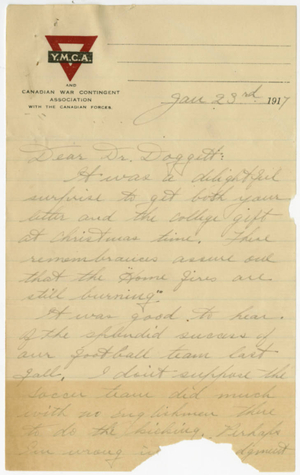 Y.M.C.A.
AND
CANADIAN WAR CONTINGENT
ASSOCIATION
WITH THE CANADIAN FORCES.
Jan 23rd 1917
Dear Dr. Doggett:
It was a delightful
surprise to get both your
letter and the college gift
at Christmas time. These
remembrances assure one
that the "Home fires are
still burning"
It was good to hear
of the splendid success of
our football team last
fall. I don't suppose the
soccer team did much
with no englishmen there
to do the kicking. Perhaps
I'm wrong in judgment